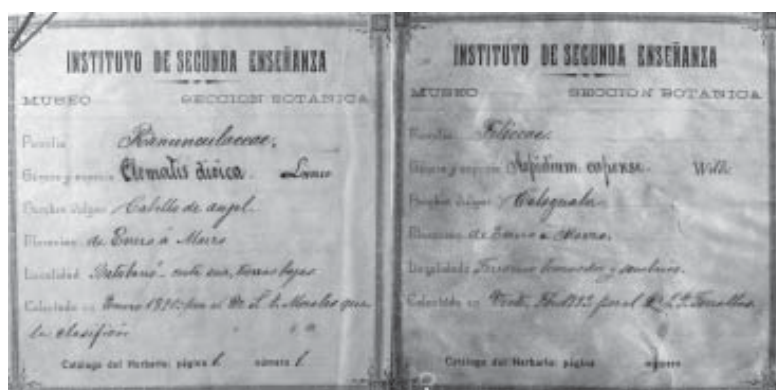 INSTITUTO DE SEGUNDA ENSEÑANZA
MUSEO SECCION BOTANICA
Familia Ranunculaceae.
Género y especie Clematis dioica. Linneo
Nombre vulgar Cabello de angel.
Floracion de Enero á Marzo
Localidad Batabanó tierras bajas
Colectado en Enero 1891 por el Dr. S. de Morales que
la clasificó
Catálogo del Herbario: página 1 número 1
INSTITUTO DE SEGUNDA ENSEÑANZA
MUSEO SECCION BOTANICA
Familia Filiceae.
Género y especie Aspidium capense. Willd.
Nombre vulgar Calaguala.
Floracion de Enero a Marzo.
Localidad Terrenos y sombrios.
Colectado en por el Dr.
Catálogo del Herbario: página número